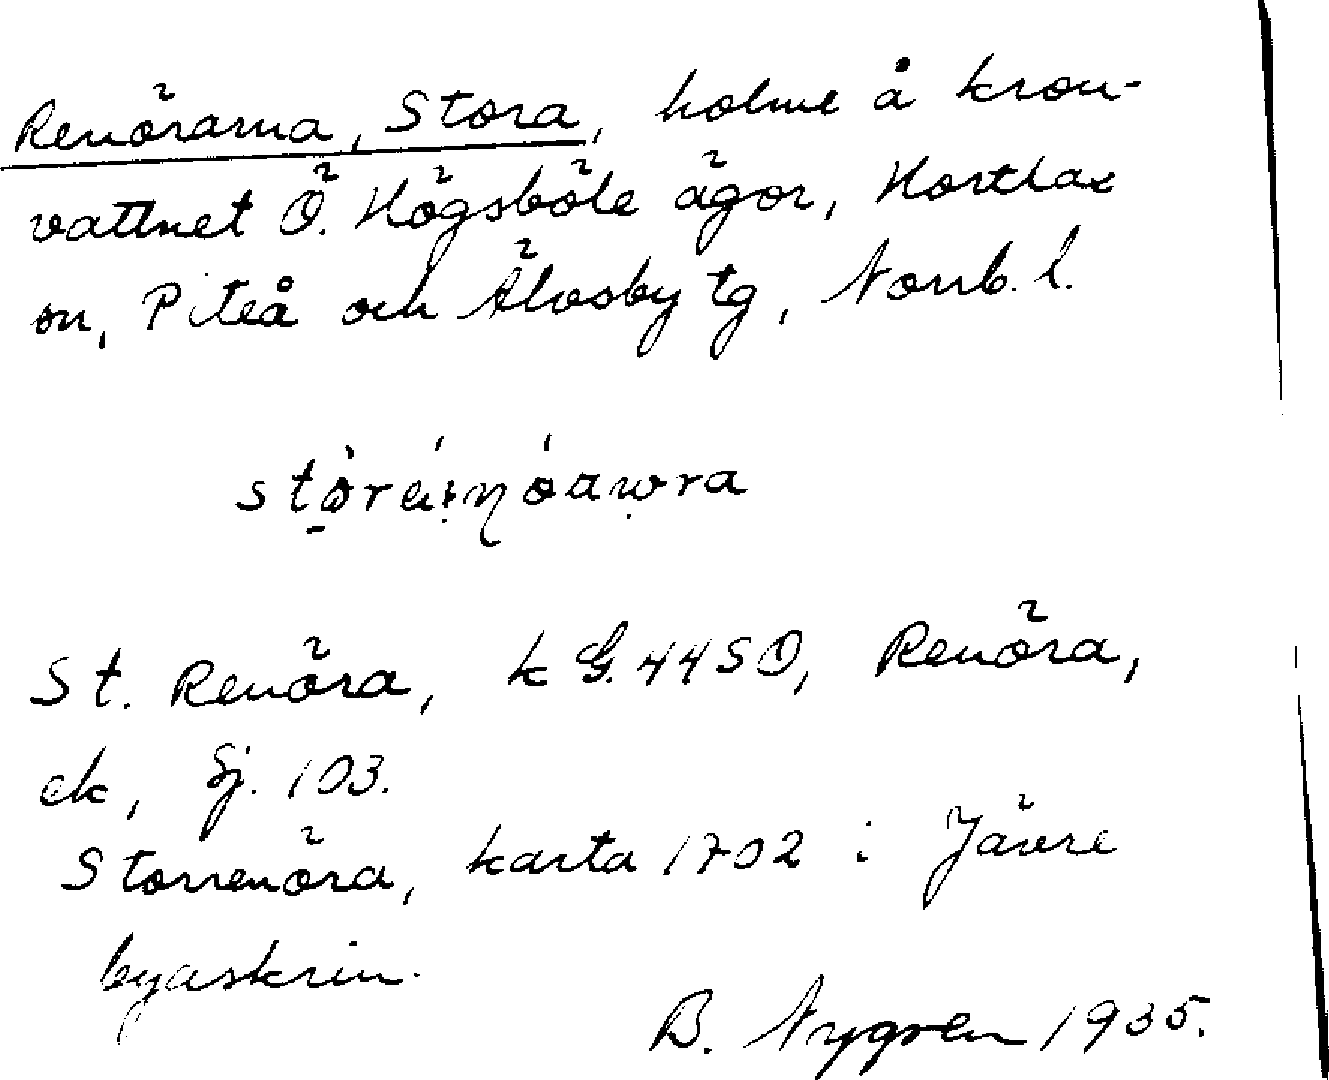 Renörarna, Stora, holme å kron-
vattnet Ö. Högsböle ägor, Hortlax
sn, Piteå och Älvsby tg, Norrb. l.
St. Renöra, k G. 44 SO, Renöra,
ek, Sj. 103.
Storrenöra, karta 1702 i Jävre
byaskrin.
B. Nygren 1935.